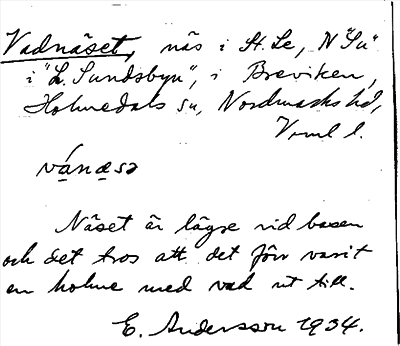 Vadnäset, näs i St. Le, N "Su"
i "L. Sundsbyn", i Breviken,
Holmedals sn, Nordmarks hd,
Vrml l.
vánǝsǝ
Näset är lägre vid basen
och det tros att det förr varit
en holme med vad ut till.
E. Andersson 1934.